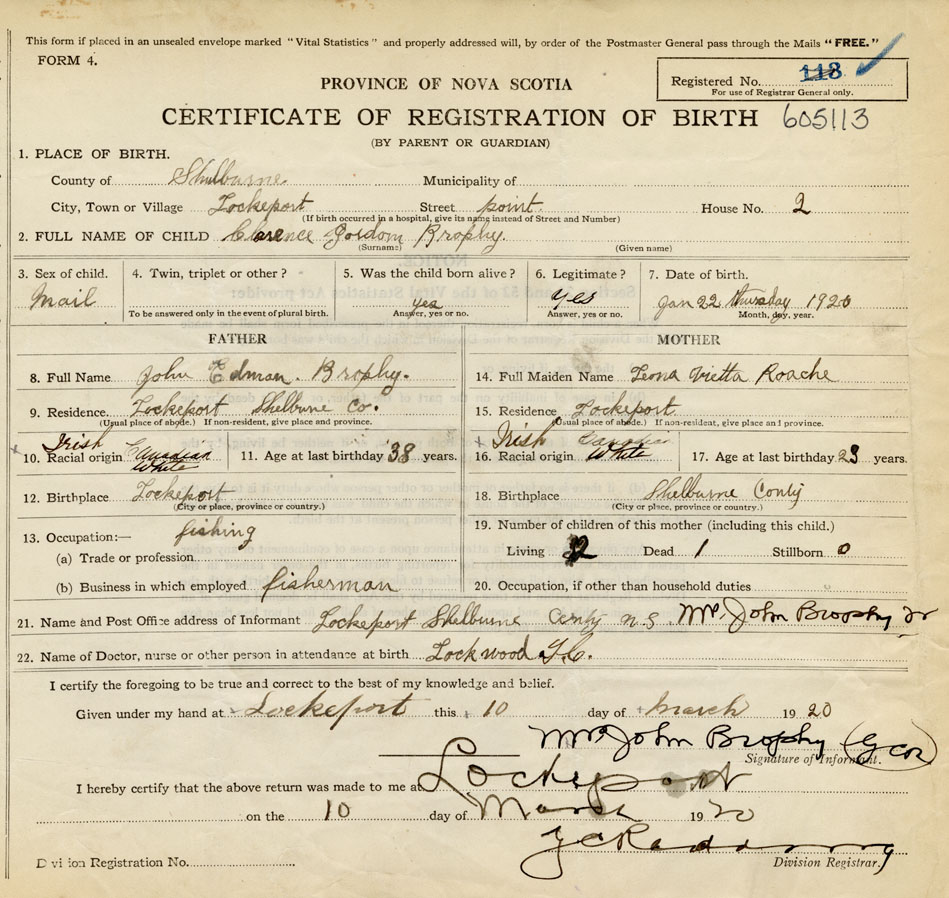 This form if placed in an unsealed envelope marked "Vital Statistics" and properly addressed will, by order of the Postmaster General pass through the Mails "FREE."
FORM 4.
Registered No. 118
For use of Registrar General only.
PROVINCE OF NOVA SCOTIA
CERTIFICATE OF REGISTRATION OF BIRTH 605113
(BY PARENT OR GUARDIAN)
1. PLACE OF BIRTH.
County of Shelburne Municipality of
City, Town or Village Lockeport Street point House No. 2
(If birth occurred in a hospital, give its name instead of Street and Number)
2. FULL NAME OF CHILD Clarence Gordom Brophy.
(Surname) (Given name)
3. Sex of child. 4. Twin, triplet or other? 5. Was the child born alive? 6. Legitimate? 7. Date of birth.
Mail yes Yes Jan 22 thursday 1920
To be answered only in the event of plural birth. Answer, yes or no. Answer, yes or no. Month, day, year.
FATHER MOTHER
8. Full Name John Edman. Brophy. 14. Full Maiden Name Leona Vietta Roache
9. Residence. Lockeport Shelburne Co. 15. Residence Lockeport
(Usual place of abode.) If non-resident, give place and province. (Usual place of abode.) If non-resident, give place and province.
Irish Irish Canadian
10. Racial origin Canadian White 11. Age at last birthday 38 years. 16. Racial origin White 17. Age at last birthday 23 years.
12. Birthplace Lockeport 18. Birthplace Shelburne Conty
(City or place, province or country.) (City or place, province or country.)
13. Occupation:— fishing 19. Number of children of this mother (including this child.)
(a) Trade or profession Living 2 Dead 1 Stillborn 0
(b) Business in which employed fisherman 20. Occupation, if other than household duties
21. Name and Post Office address of Informant Lockeport Shelburne Conty n.S. Mrs. John Brophy Jr
22. Name of Doctor, nurse or other person in attendance at birth Lockwood T.C.
I certify the foregoing to be true and correct to the best of my knowledge and belief.
Given under my hand at Lockeport this 10 day of March 1920
Mrs John Brophy
Signature of Informant.
I hereby certify that the above return was made to me at Lockeport
on the 10 day of March 1920
Division Registration No. Division Registrar.